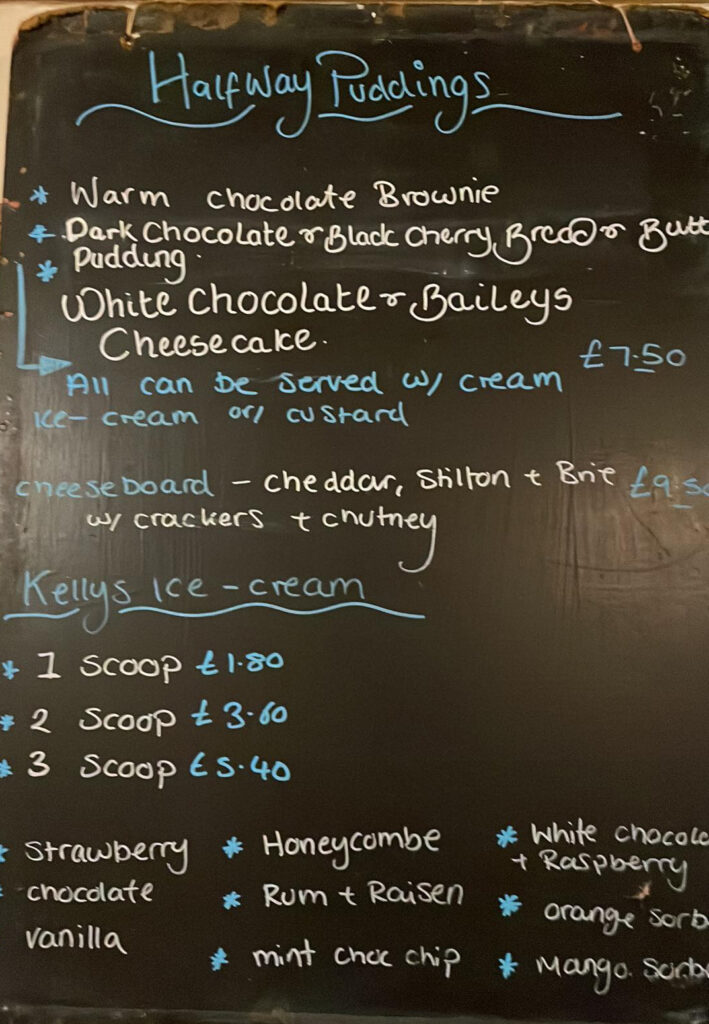 Halfway Puddings
* Warm chocolate Brownie
* Dark Chocolate & Black Cherry Bread & Butt
* Pudding.
White Chocolate & Baileys
Cheesecake.
£7.50
All can be served w/ cream
ice-cream or/ custard
cheeseboard - cheddar, Stilton + Brie £9.50
w/ crackers + chutney
Kellys Ice-cream
* 1 Scoop £1.80
* 2 Scoop £3.60
* 3 Scoop £5.40
* Strawberry * Honeycombe * White chocol
+ Raspberry
* chocolate * Rum + Raisen * orange sorb
vanilla * mint choc chip * Mango. Sorb